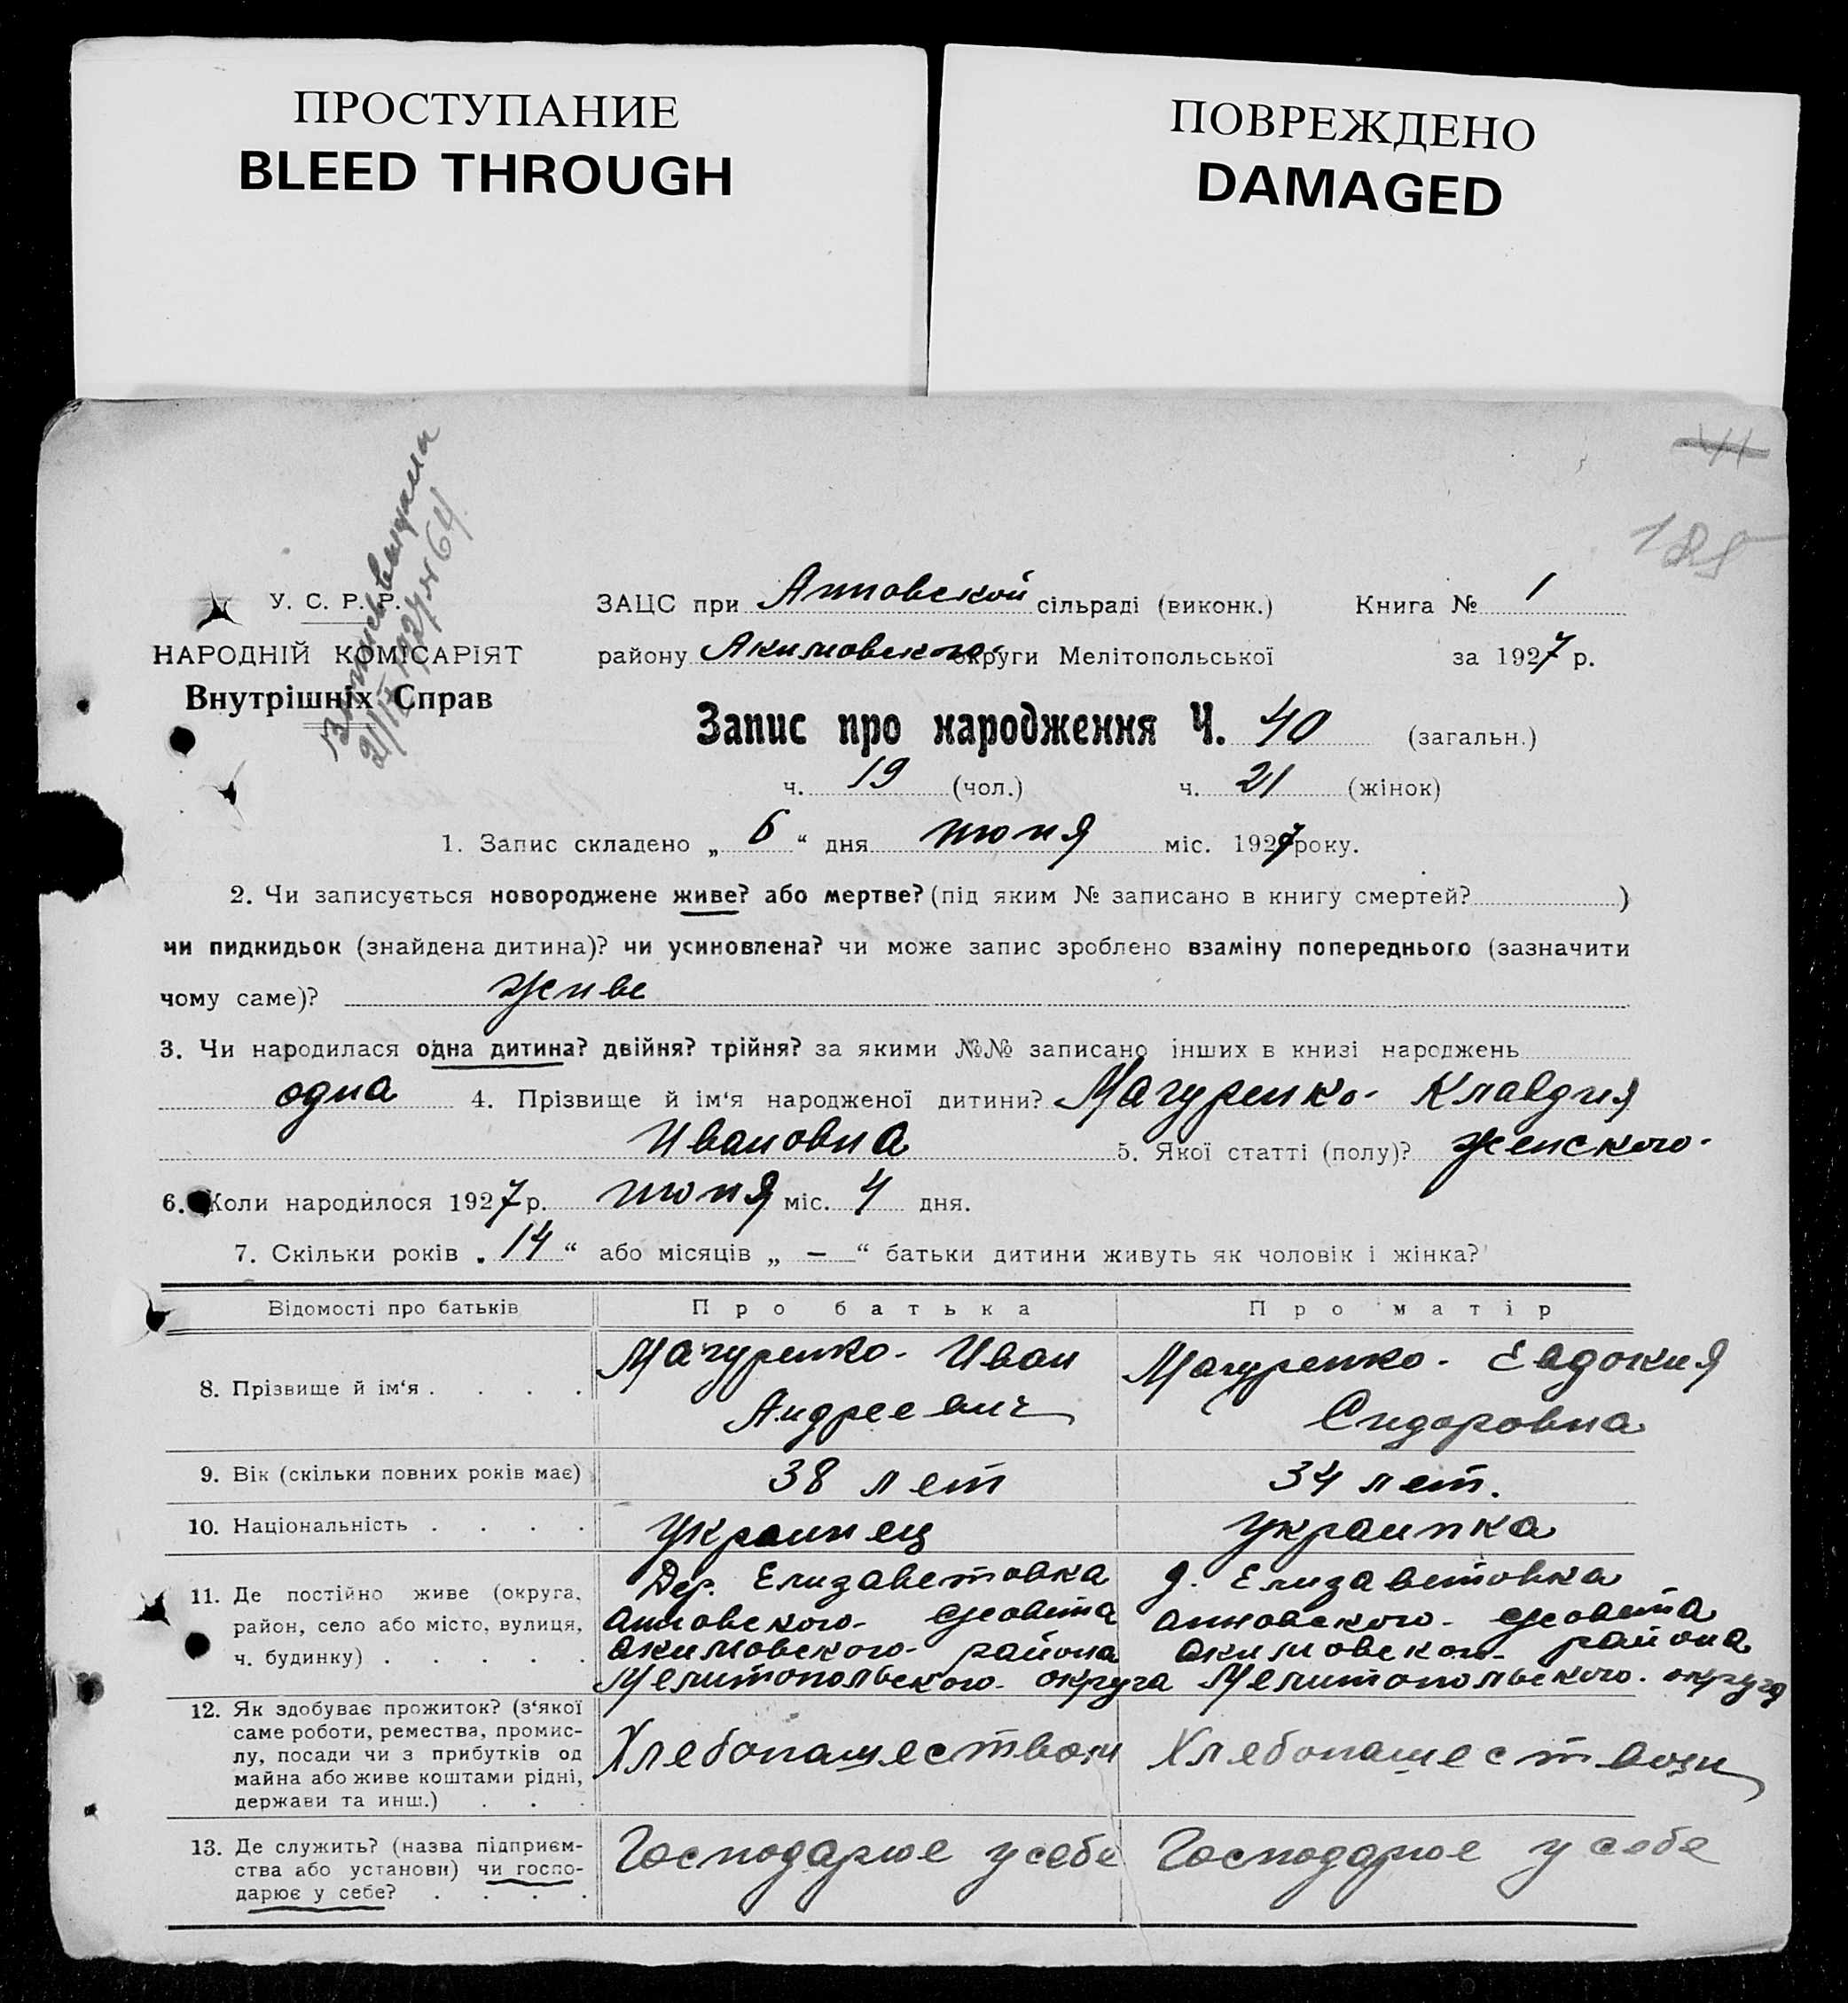 ПРОСТУПАНИЕ
BLEED THROUGH
ПОВРЕЖДЕНО
DAMAGED
41
185
Выпись выдана
21/IX 1927 № 64
У. С. Р. Р.
НАРОДНІЙ КОМІСАРІЯТ
Внутрішніх Справ
ЗАЦС при Анновской сільраді (виконк.) Книга № 1
району Акимовского округи Мелітопольської за 1927 р.
Запис про народження Ч. 40 (загальн.)
ч. 19 (чол.) ч. 21 (жінок)
1. Запис складено „ 6 “ дня июня міс. 1927 року.
2. Чи записується новороджене живе? або мертве? (під яким № записано в книгу смертей? )
чи пидкидьок (знайдена дитина)? чи усиновлена? чи може запис зроблено взаміну попереднього (зазначити
чому саме)? живе
3. Чи народилася одна дитина? двійня? трійня? за якими №№ записано інших в книзі народжень
одна 4. Прізвище й ім‘я народженої дитини? Мачуренко Клавдия
Ивановна 5. Якої статті (полу)? женского
6. Коли народилося 1927 р. июня міс. 4 дня.
7. Скільки років „ 14 “ або місяців „ — “ батьки дитини живуть як чоловік і жінка?
Відомості про батьків Про батька Про матір
8. Прізвище й ім‘я . . . . Мачуренко Иван Мачуренко Евдокия
Андреевич Сидоровна
9. Вік (скільки повних років має) 38 лет 34 лет.
10. Національність . . . . украинец украинка
11. Де постійно живе (округа, Дер. Елизаветовка д. Елизаветовка
район, село або місто, вулиця, анновского с/совета анновского с/совета
ч. будинку) . . . . . акимовского района акимовского района
Мелитопольского округа Мелитопольского округа
12. Як здобуває прожиток? (з‘якої
саме роботи, ремества, промис-
лу, посади чи з прибутків од Хлебопашеством Хлебопашеством
майна або живе коштами рідні,
держави та инш.) . . .
13. Де служить? (назва підприєм- Господарює у себе Господарює у себе
ства або установи) чи госпо-
дарює у себе? . . . .